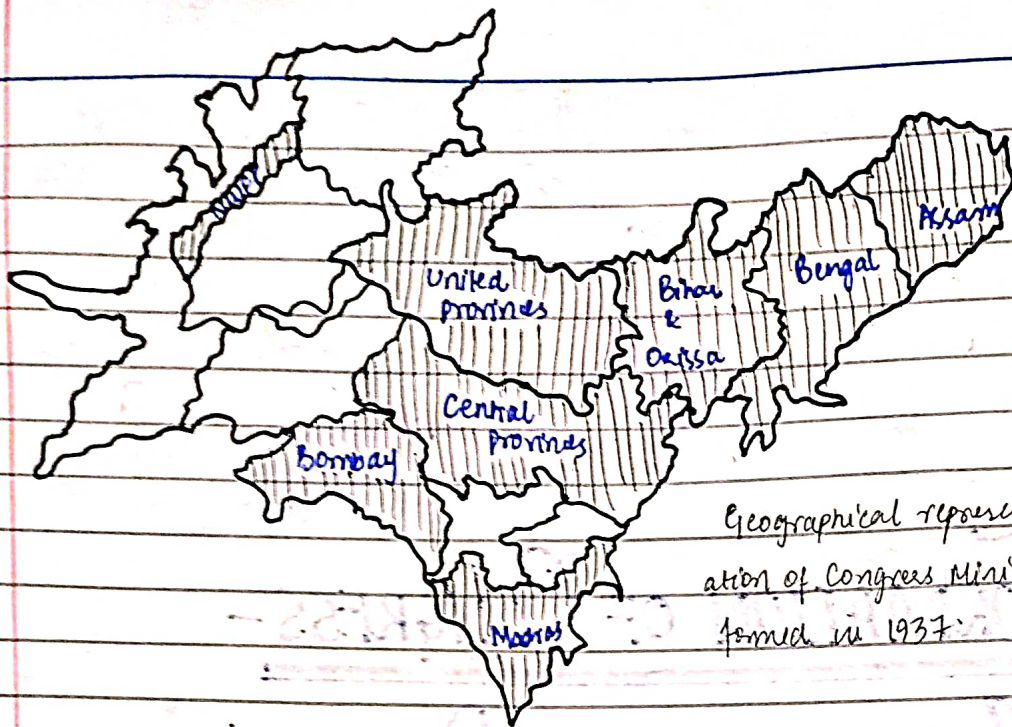 NWFP
United
Provinces
Bihar
&
Orissa
Bengal
Assam
Central
Provinces
Bombay
Madras
Geographical represe
ation of Congress Mini
formed in 1937.